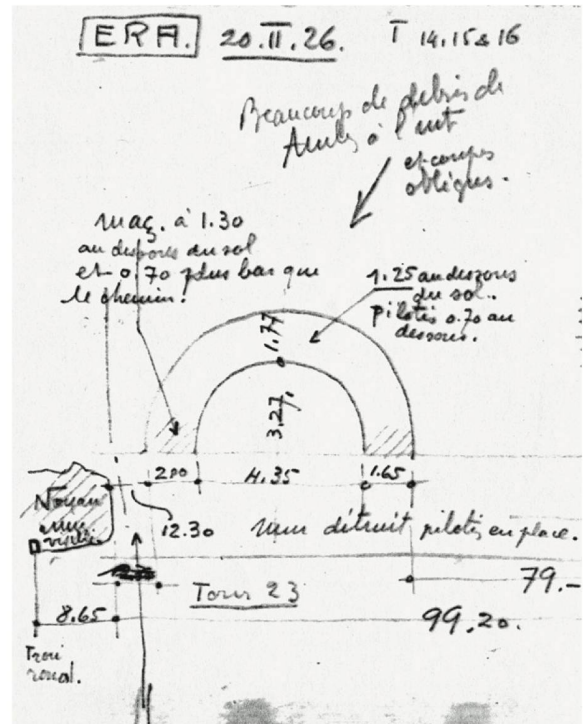 ERA. 20.II.26. T 14.15 & 16
Beaucoup de debris de
à l'
et coupes
obliques.
maç. à 1.30
au dessous du sol
et 0.70 plus bas que
le chemin.
1.25 au dessous
du sol.
pilotis 0.70 au
dessous.
1.77
3.27
200 4.35 1.65
Noyau
12.30 Mur détruit pilotis en place.
Tour 23 79.-
8.65 99.20.